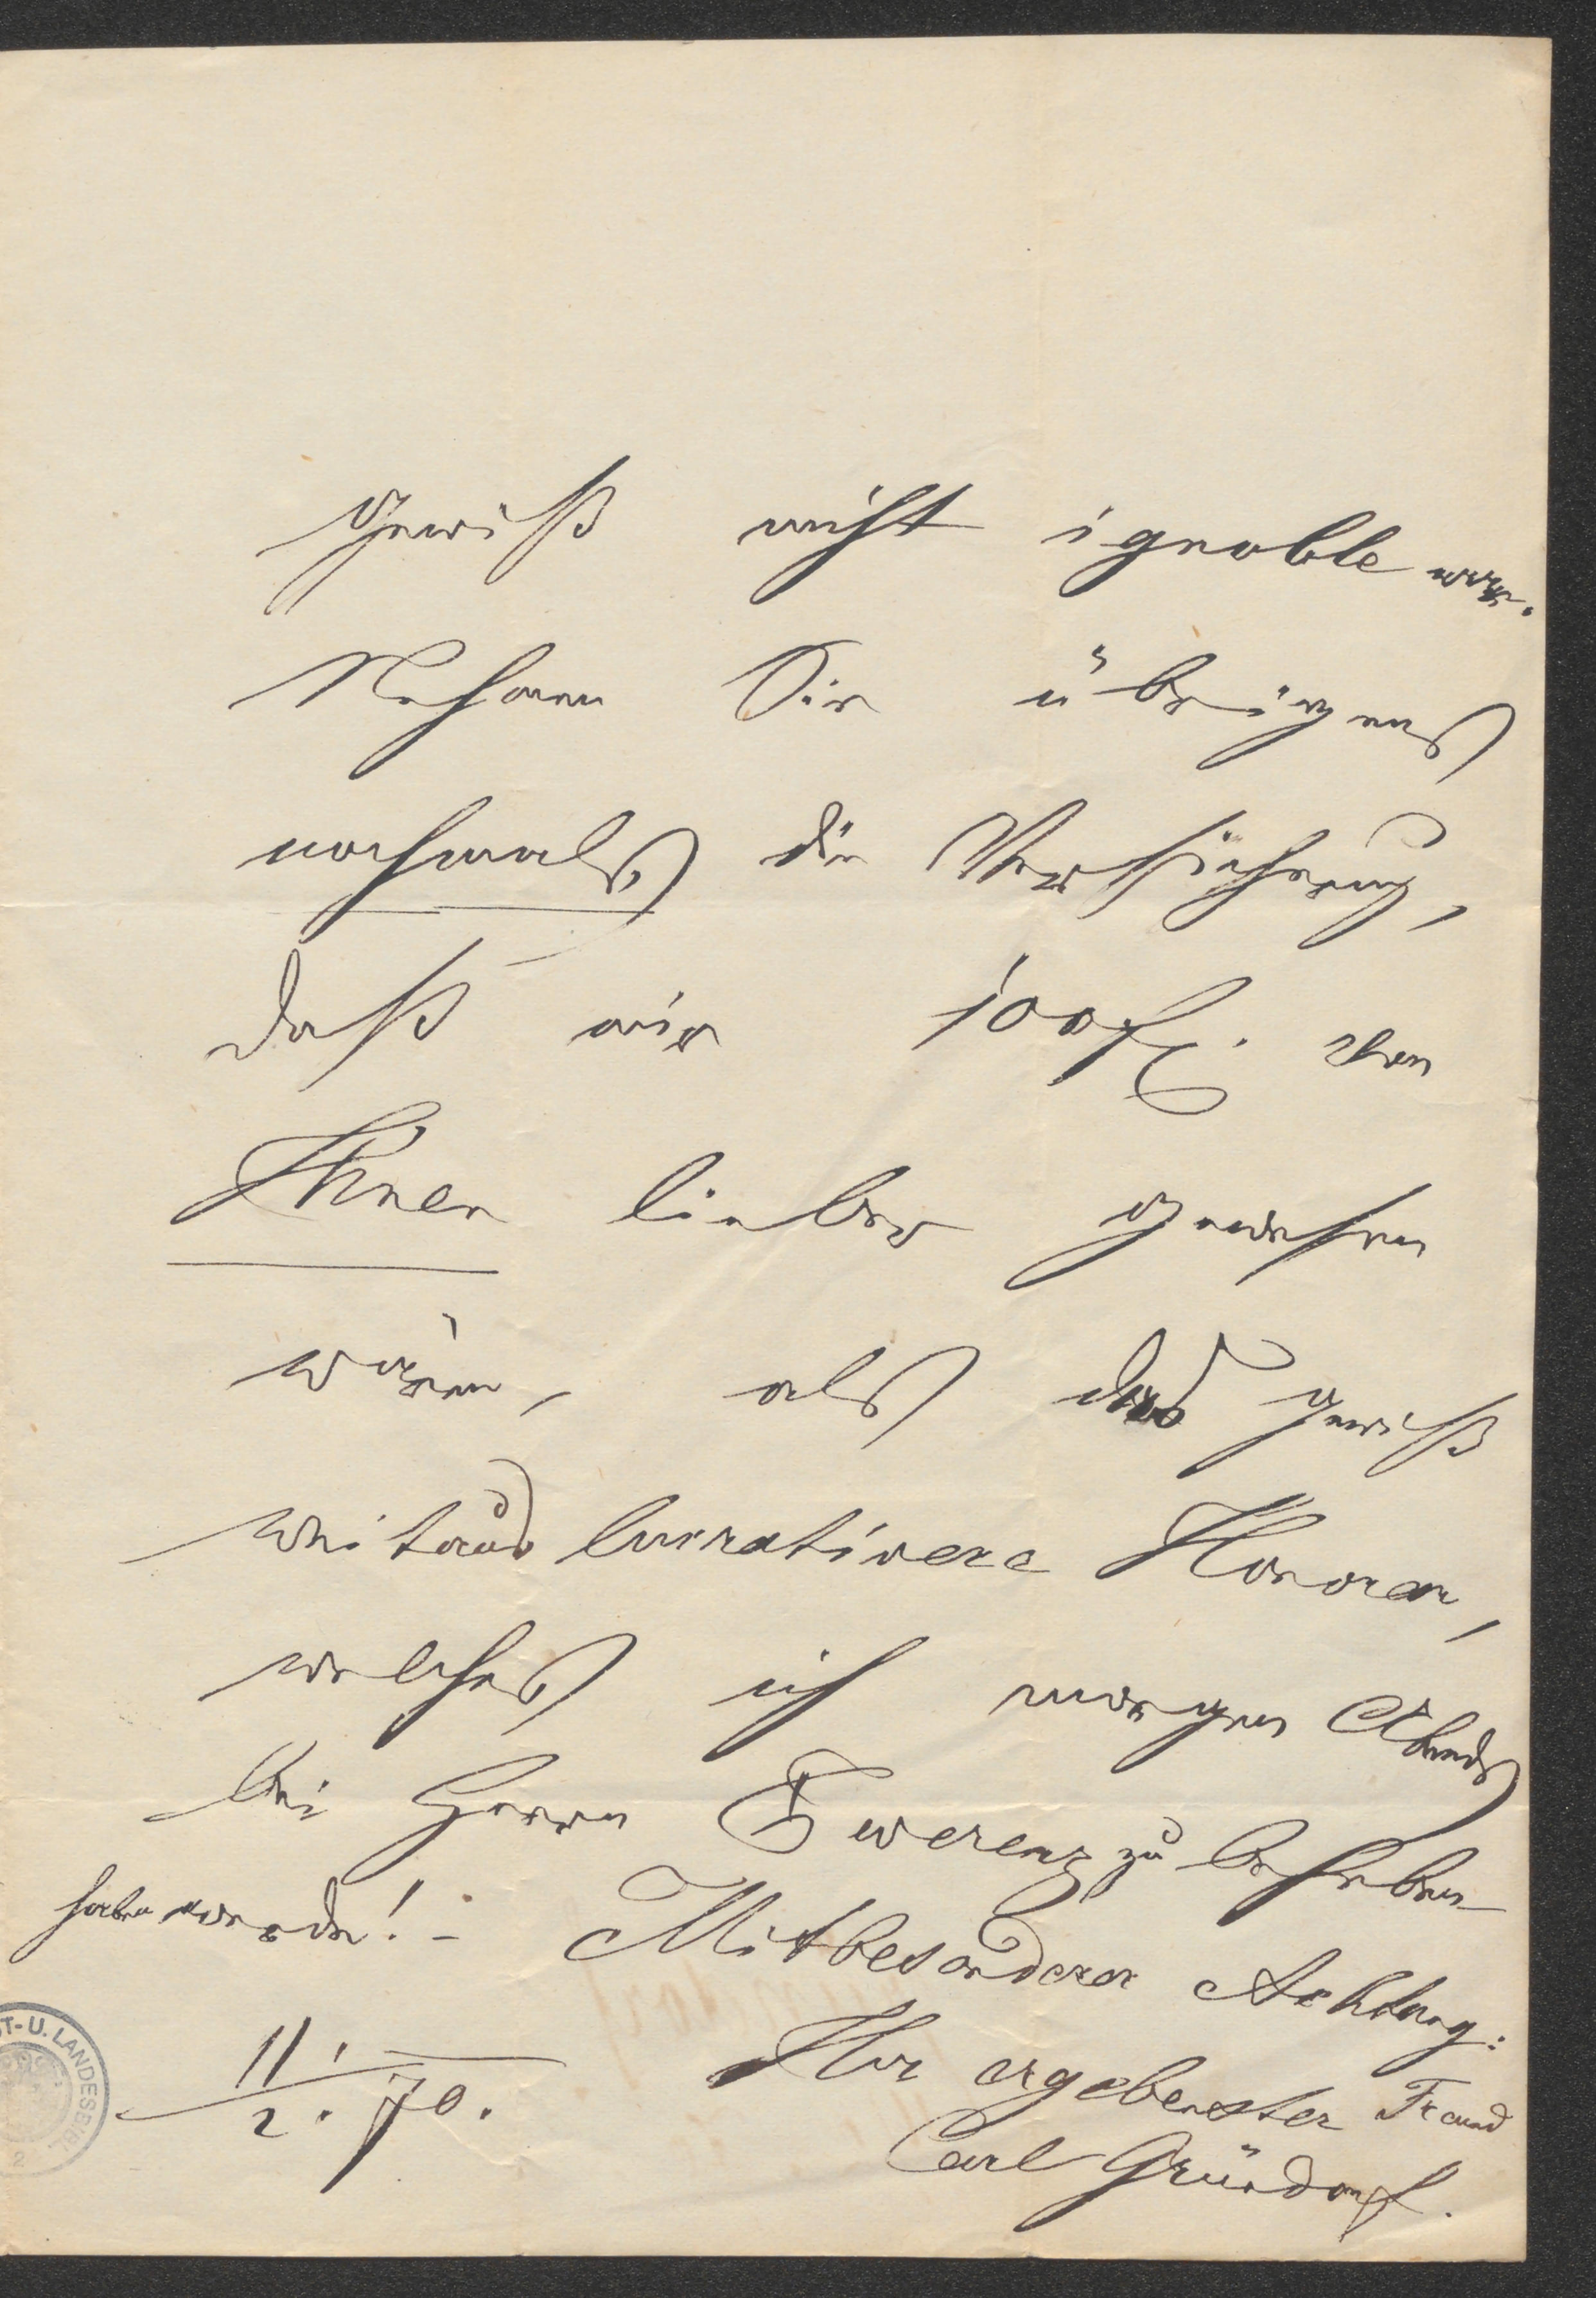 gewiß nicht ignoble war.
Nehmen Sie übrigens
nochmals die Versicherung,
daß mir 100 fl. von
Ihnen lieber gewesen
wären, als das gewiß
weitaus lucrativere Honorar,
welches ich morgen Abends
bei Herrn Swerenz zu beheben
haben werde! –
Mit besonderer Achtung:
Ihr ergebenster Freund
11./2. 70.
Carl Gründorf.
T- U. LANDESBIBL
2